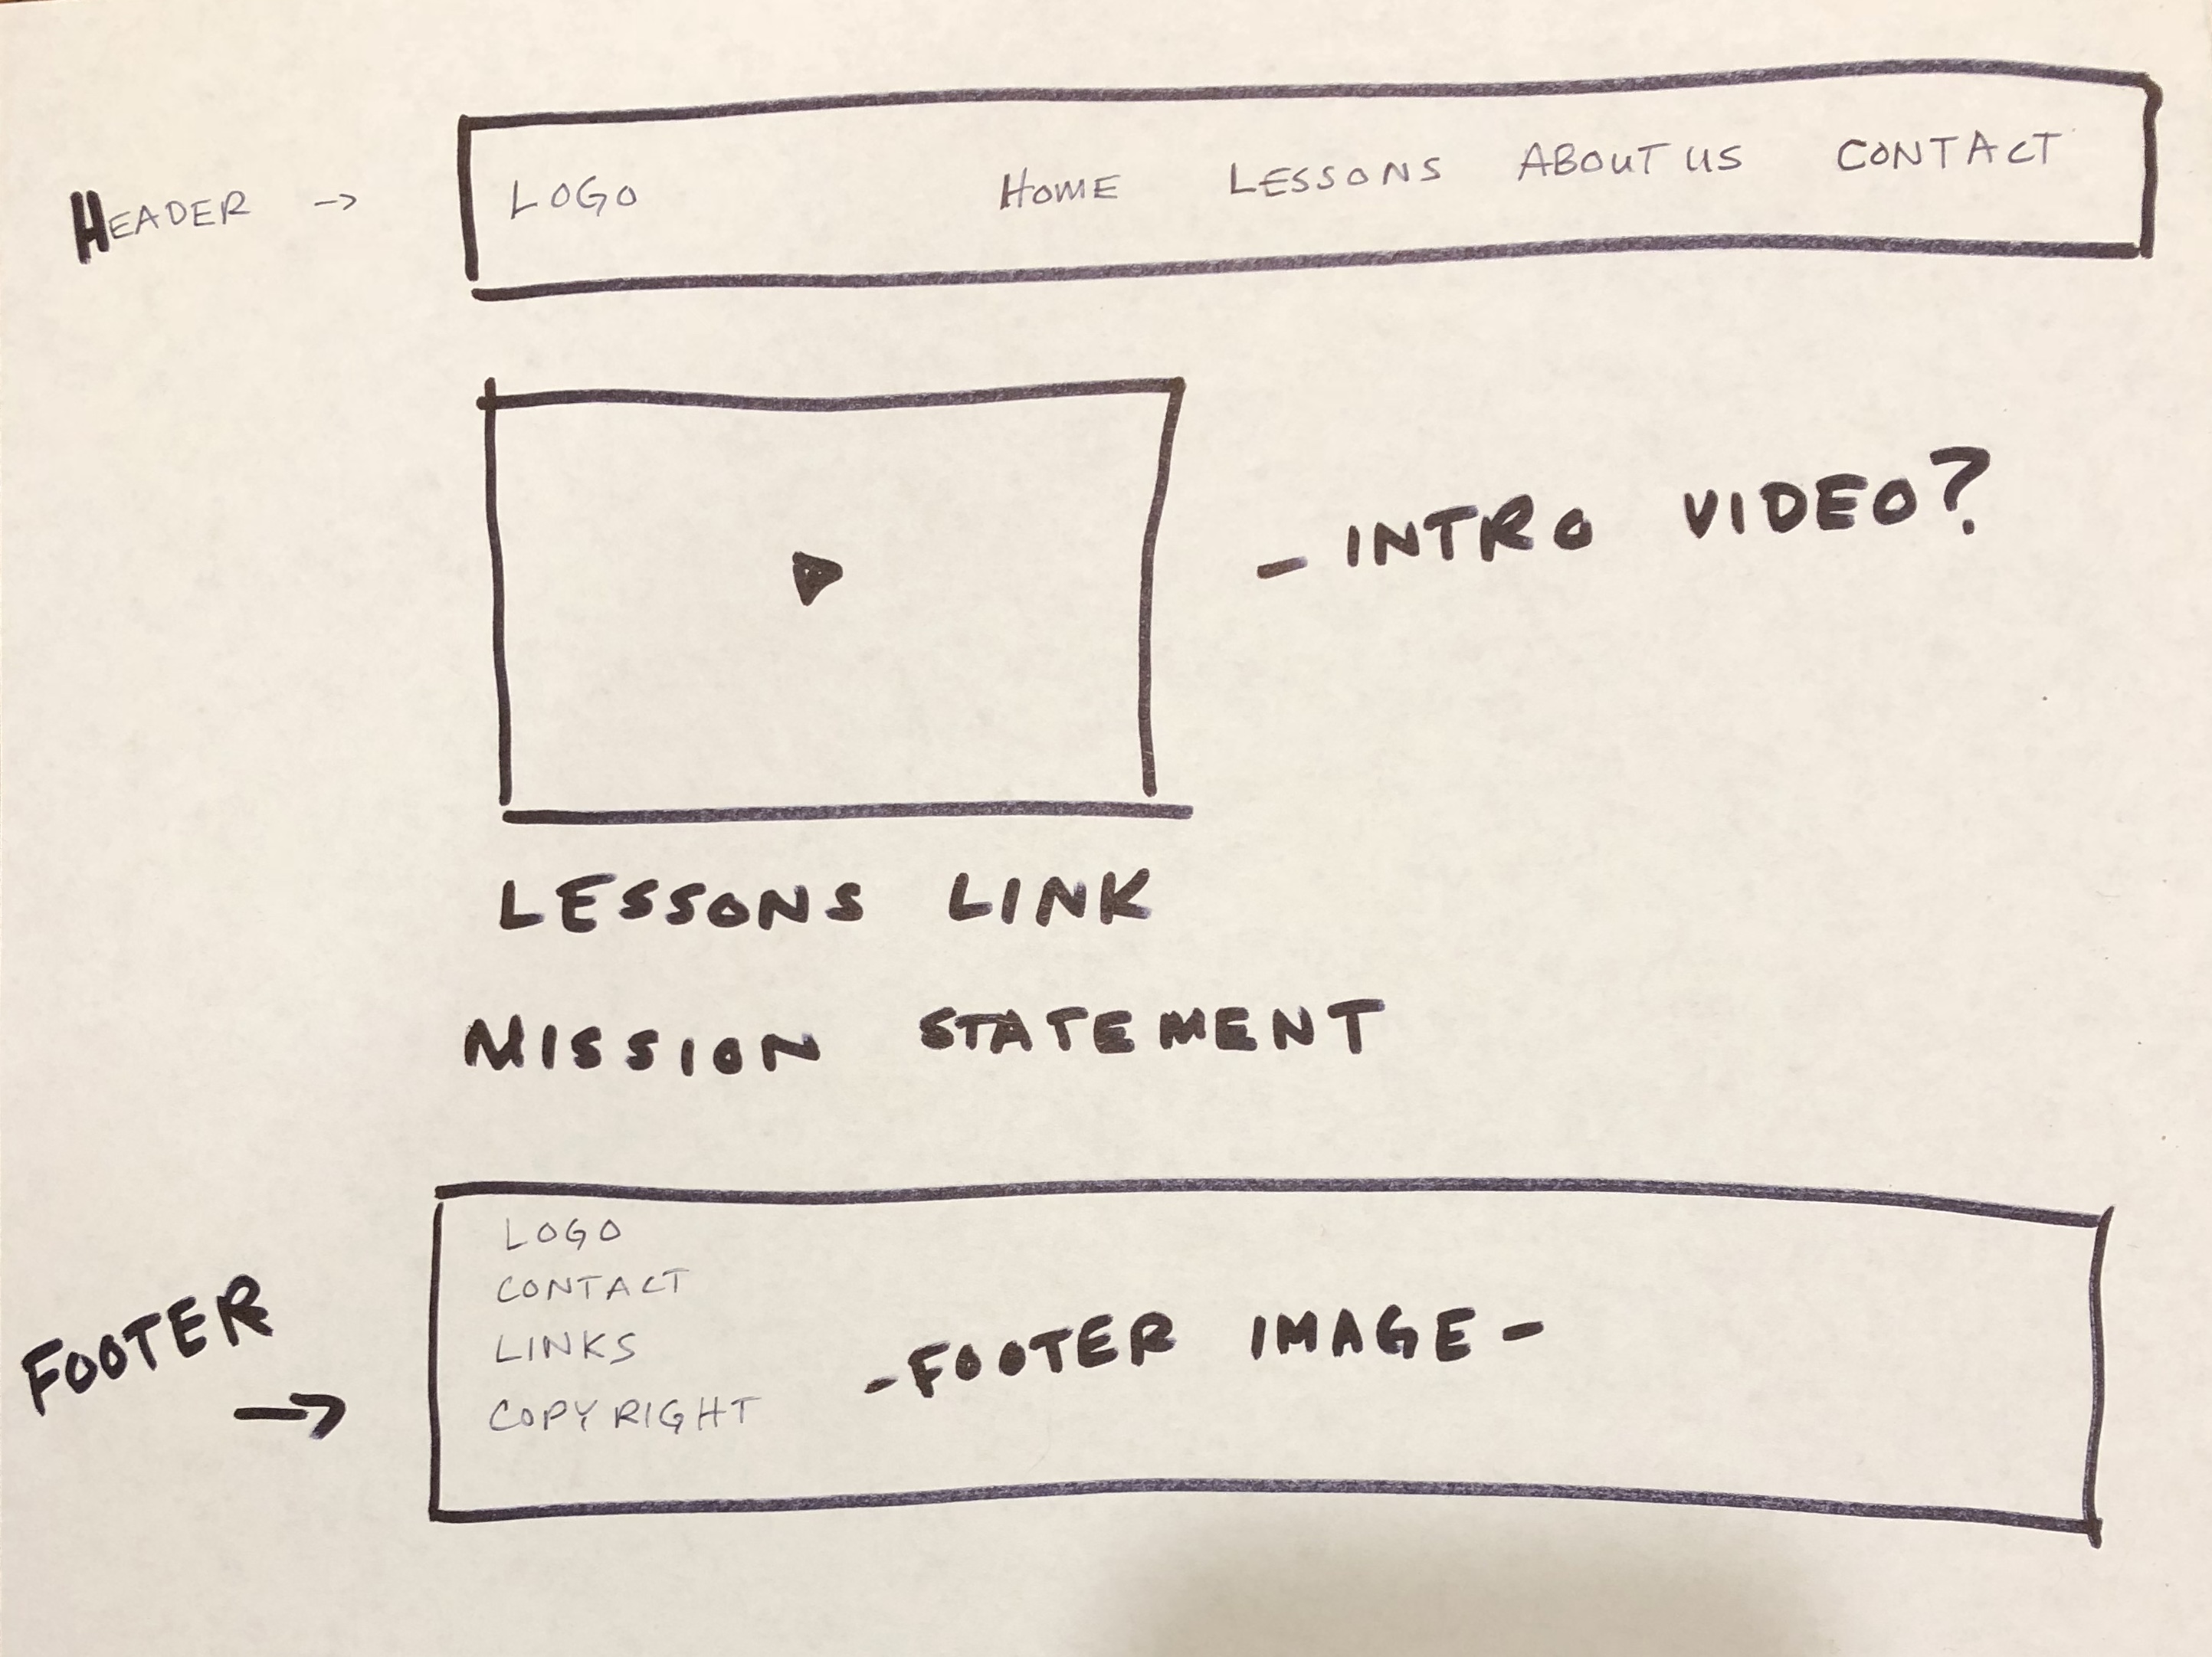 HEADER → LOGO HOME LESSONS ABOUT US CONTACT
- INTRO VIDEO?
LESSONS LINK
MISSION STATEMENT
FOOTER →
LOGO
CONTACT
LINKS
COPYRIGHT
- FOOTER IMAGE -